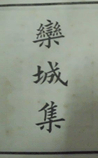 欒城集